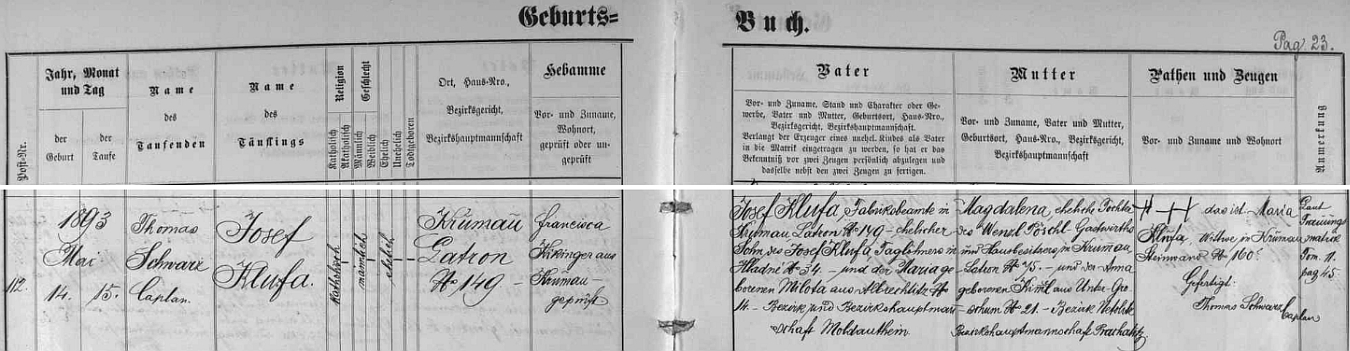 Geburts=
Buch.
Pag. 23.
Post-Nr.
Jahr, Monat
und Tag
der
Geburt
der
Taufe
Name
des
Taufenden
Name
des
Täuflings
Religion
Katholisch
Akatholisch
Geschlecht
Männlich
Weiblich
Ehelich
Unehelich
Todtgeboren
Ort, Haus-Nro.,
Bezirksgericht,
Bezirkshauptmannschaft
Hebamme
Vor- und Zuname,
Wohnort,
geprüft oder un-
geprüft
Vater
Vor- und Zuname, Stand und Charakter oder Ge-
werbe, Vater und Mutter, Geburtsort, Haus-Nro.,
Bezirksgericht, Bezirkshauptmannschaft.
Verlangt der Erzeuger eines unehel. Kindes als Vater
in die Matrik eingetragen zu werden, so hat er das
Bekenntniß vor zwei Zeugen persönlich abzulegen und
dasselbe nebst den zwei Zeugen zu fertigen.
Mutter
Vor- und Zuname, Vater und Mutter,
Geburtsort, Haus-Nro., Bezirksgericht,
Bezirkshauptmannschaft
Pathen und Zeugen
Vor- und Zuname und Wohnort
Anmerkung
112.
1893
Mai
14. 15.
Thomas
Schwarz
Caplan.
Josef
Klufa.
katholisch
männlich
ehelich
Krumau
Latron
No 149
Francisca
aus
Krumau
geprüft
Josef Klufa, Fabriksbeamte in
Krumau Latron No 149 – ehelicher
Sohn des Josef Klufa Taglöhners in
Hladná No 34. – und der Maria ge-
borenen Milota aus Albrechtitz No
14. – Bezirk und Bezirkshauptmann-
schaft Moldauthein
Magdalena, eheliche Tochter
des Wenzl Pöschl Gastwirths
und Hausbesitzers in Krumau,
Latron No 75. – und der Anna
geborenen aus Unter-Gro-
schum No 21. – Bezirk Netolitz
Bezirkshauptmannschaft Prachatitz
+++ das ist Maria
Klufa Witwe in Krumau
No 160.
Gefertigt.
Thomas Schwarz Caplan
Laut
Trauungs
matrik
Tom. 11.
pag 45